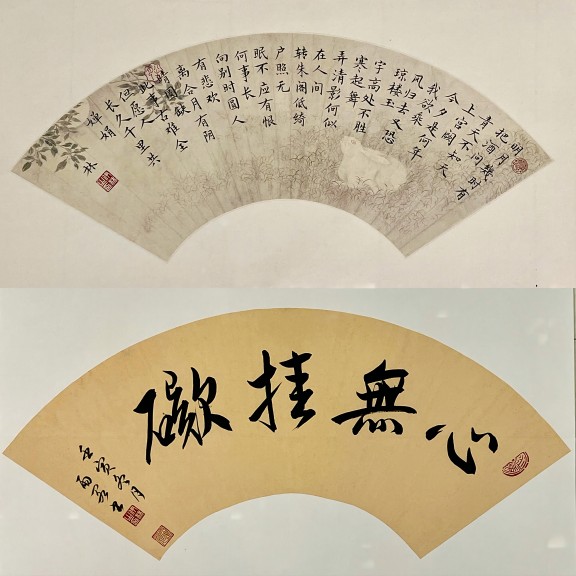 明月幾时有
把酒问
青天不知天
上宫阙
今夕是何年
我欲乘
风归去又恐
琼楼玉
宇高处不胜
寒起舞
弄清影何似
在人间
转朱阁低绮
户照无
眠不应有恨
何事长
向别时圆人
有悲欢
离合月有阴
晴圆缺
此事古难全
但愿人
长久千里共
婵娟
林
心無挂礙
壬寅冬月
书